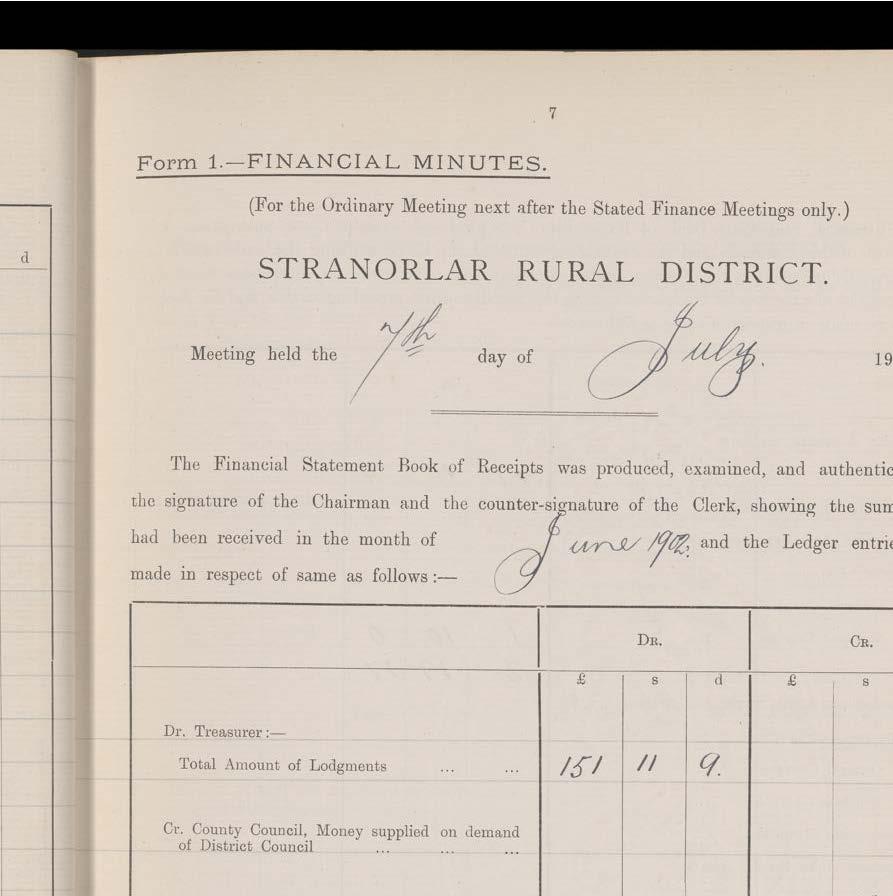 7
Form 1.—FINANCIAL MINUTES.
(For the Ordinary Meeting next after the Stated Finance Meetings only.)
STRANORLAR RURAL DISTRICT.
d
Meeting held the 7th day of July. 19
The Financial Statement Book of Receipts was produced, examined, and authentic
the signature of the Chairman and the counter-signature of the Clerk, showing the sum
had been received in the month of June 1902, and the Ledger entrie
made in respect of same as follows :—
DR. CR.
£ s d £ s
Dr. Treasurer :—
Total Amount of Lodgments ... ... 151 11 9.
Cr. County Council, Money supplied on demand
of District Council ... ... ...